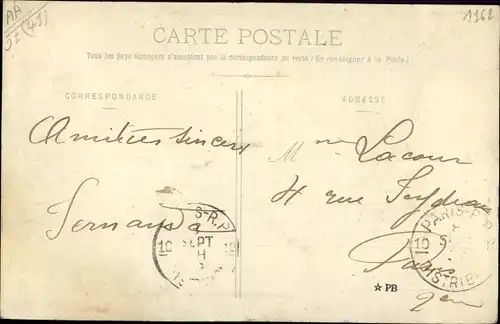 AA
1162
CARTE POSTALE
Tous les pays étrangers n'acceptent pas la correspondance au recto (Se renseigner à la Poste)
CORRESPONDANCE
ADRESSE
Amitiés sincères
Fernanda
Mme Lacour
4 rue Feydeau
Paris
2em
S-R.P
10 SEPT 10
PARIS-P.
10 S
DISTRIB
★ PB